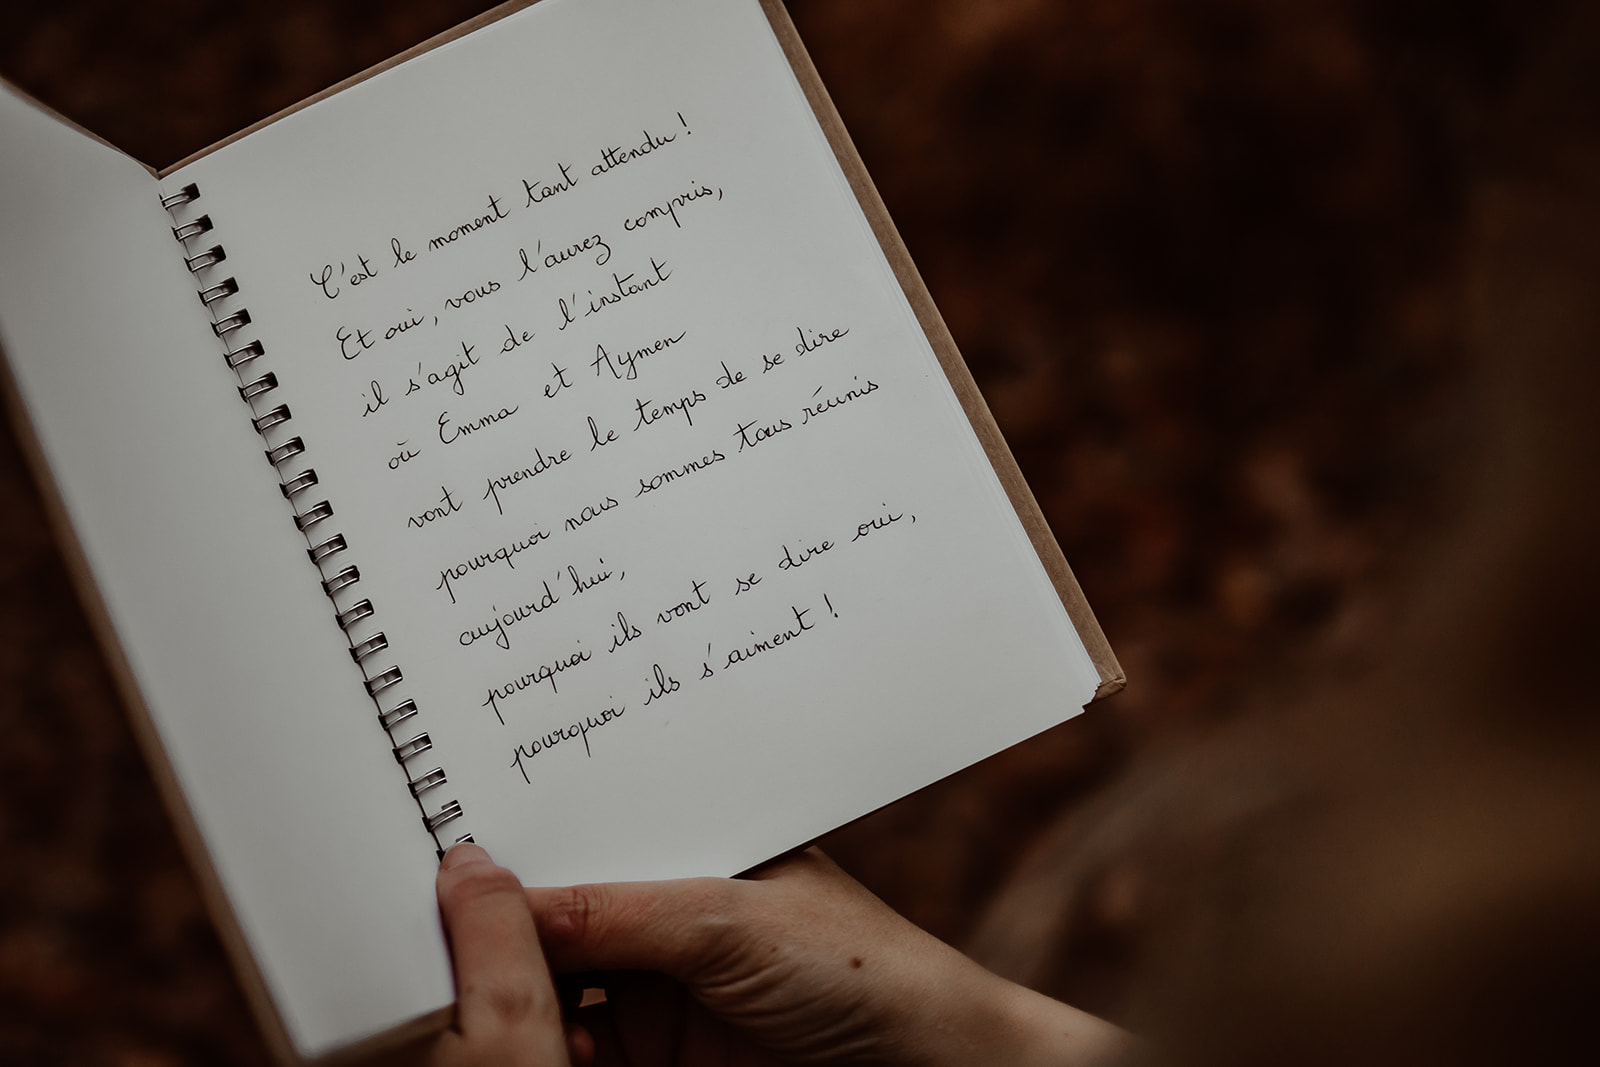 C'est le moment tant attendu !
Et oui, vous l'aurez compris,
il s'agit de l'instant
où Emma et Aymen
vont prendre le temps de se dire
pourquoi nous sommes tous réunis
aujourd'hui,
pourquoi ils vont se dire oui,
pourquoi ils s'aiment !